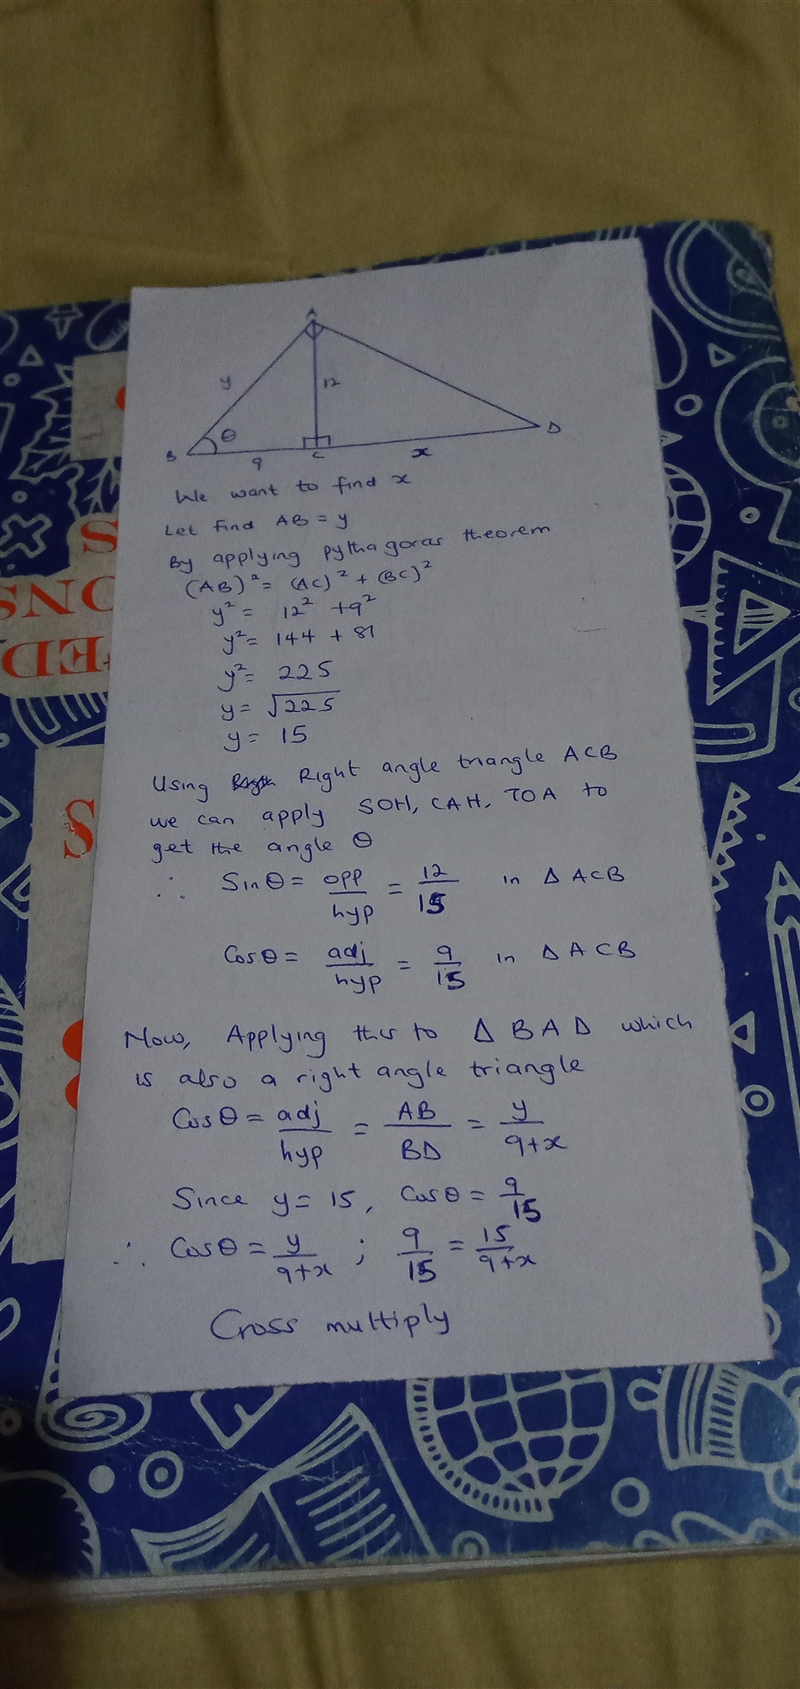 A
y
12
θ
B
9
C
x
D
We want to find x
Let find AB = y
By applying pythagoras theorem
(AB)² = (AC)² + (BC)²
y² = 12² + 9²
y² = 144 + 81
y² = 225
y = √225
y = 15
Using Right angle triangle ACB
we can apply SOH, CAH, TOA to
get the angle θ
∴ Sinθ = opp/hyp = 12/15 in Δ ACB
Cosθ = adj/hyp = 9/15 in Δ ACB
Now, Applying this to Δ BAD which
is also a right angle triangle
Cosθ = adj/hyp = AB/BD = y/9+x
Since y = 15, Cosθ = 9/15
∴ Cosθ = y/9+x ; 9/15 = 15/9+x
Cross multiply
S
SNO
ED
S